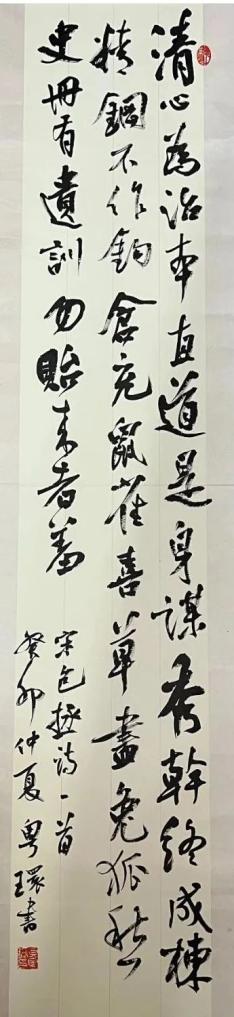 清心為治本直道是身謀秀幹終成棟
精鋼不作鈎倉充鼠雀喜草盡兔狐愁
史冊有遺訓勿貽来者羞
宋包拯詩一首
癸卯仲夏粤環書